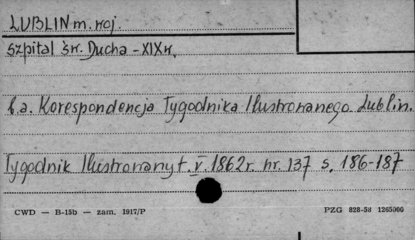 LUBLIN m. woj
szpital św. Ducha - XIX w.
b.a. Korespondencja Tygodnika Ilustrowanego. Lublin.
Tygodnik Ilustrowany t. V. 1862 r. nr. 137 s. 186-187
CWD — B-15b — zam. 1917/P PZG 828-58 1265000